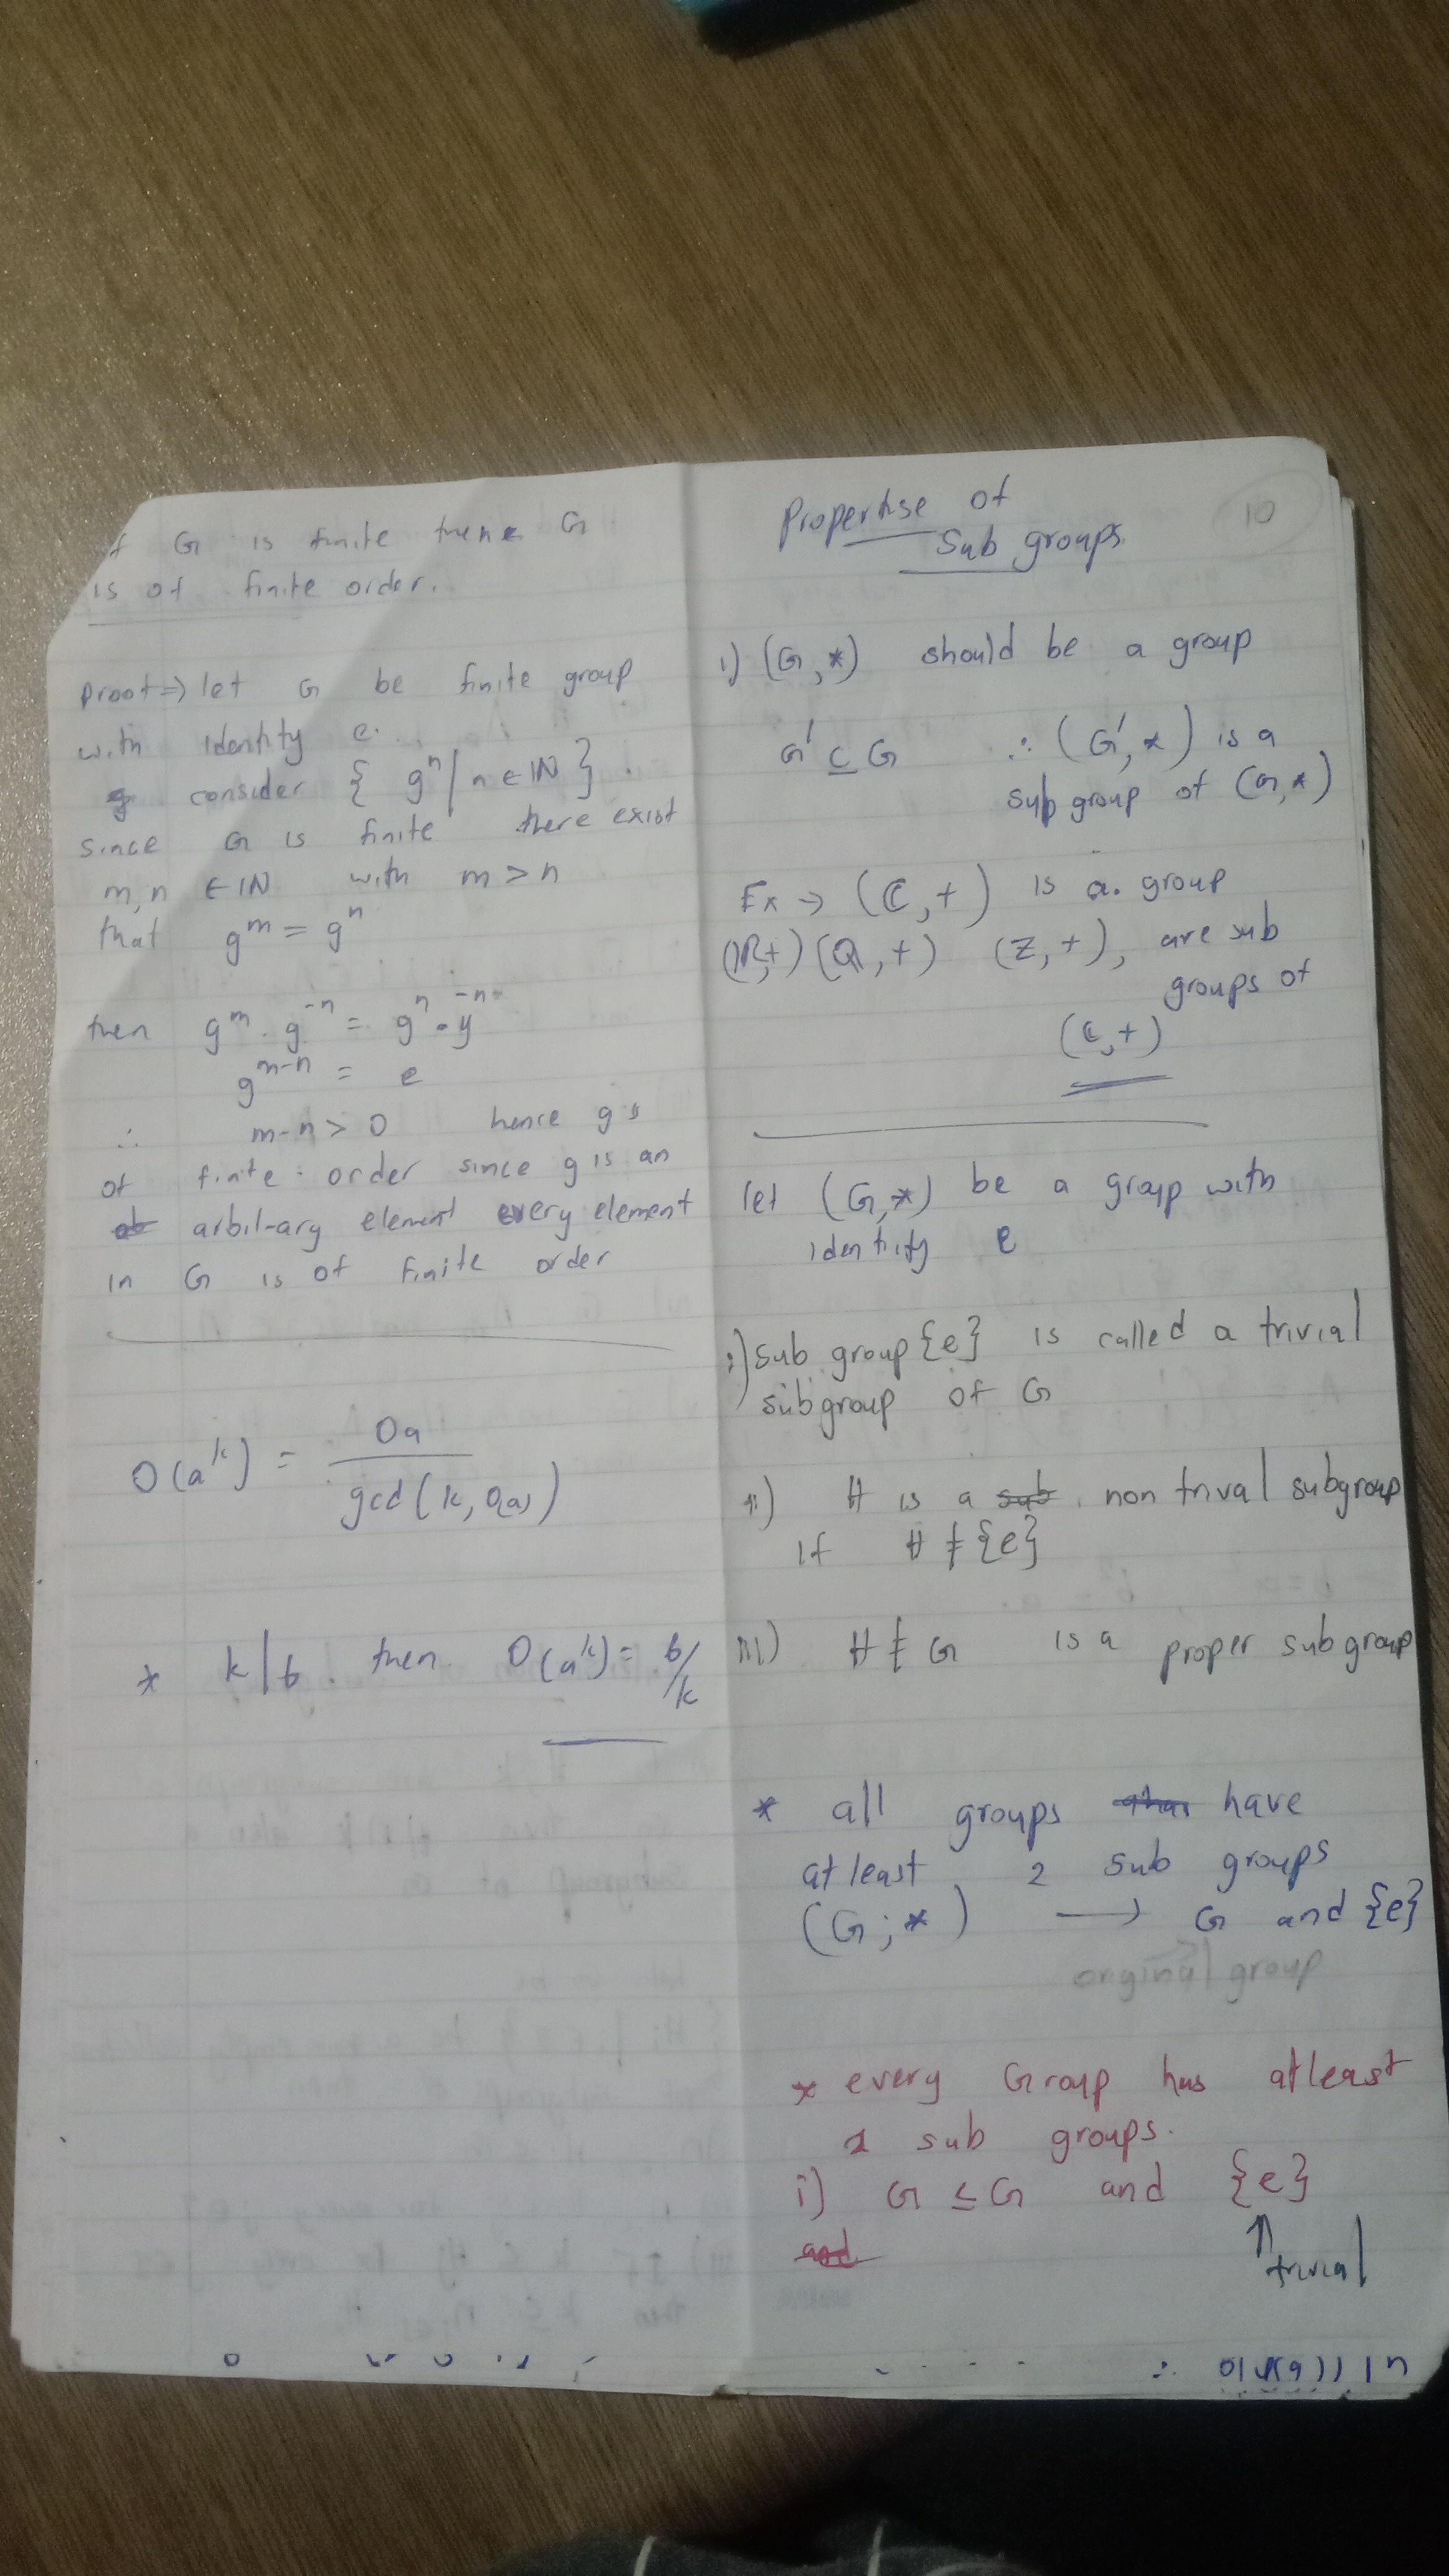 f G is finite then G
is of finite order.
proof => let G be finite group
with identity e.
consider { gⁿ | n ∈ ℕ } .
since G is finite there exist
m, n ∈ ℕ with m > n
that gᵐ = gⁿ
then gᵐ . g⁻ⁿ = gⁿ . g⁻ⁿ
gᵐ⁻ⁿ = e
∴ m-n > 0 hence g is
of finite order since g is an
arbitrary element every element
in G is of finite order
O(aᵏ) = Oa / gcd(k, O(a))
* k|b . then O(aᵏ) = b/k
10
Propertise of
Sub groups.
i) (G, *) should be a group
G' ⊆ G ∴ (G', *) is a
sub group of (G, *)
Ex → (ℂ, +) is a. group
(ℝ,+) (ℚ, +) (Z, +), are sub
groups of
(ℂ, +)
let (G, *) be a group with
identity e
i) sub group {e} is called a trivial
subgroup of G
ii) H is a sub non trival subgroup
if H ≠ {e}
iii) H ≠ G is a proper subgroup
* all groups have
atleast 2 sub groups
(G ; *) → G and {e}
original group
* every Group has atleast
2 sub groups.
i) G ≤ G and {e}
and
trivial